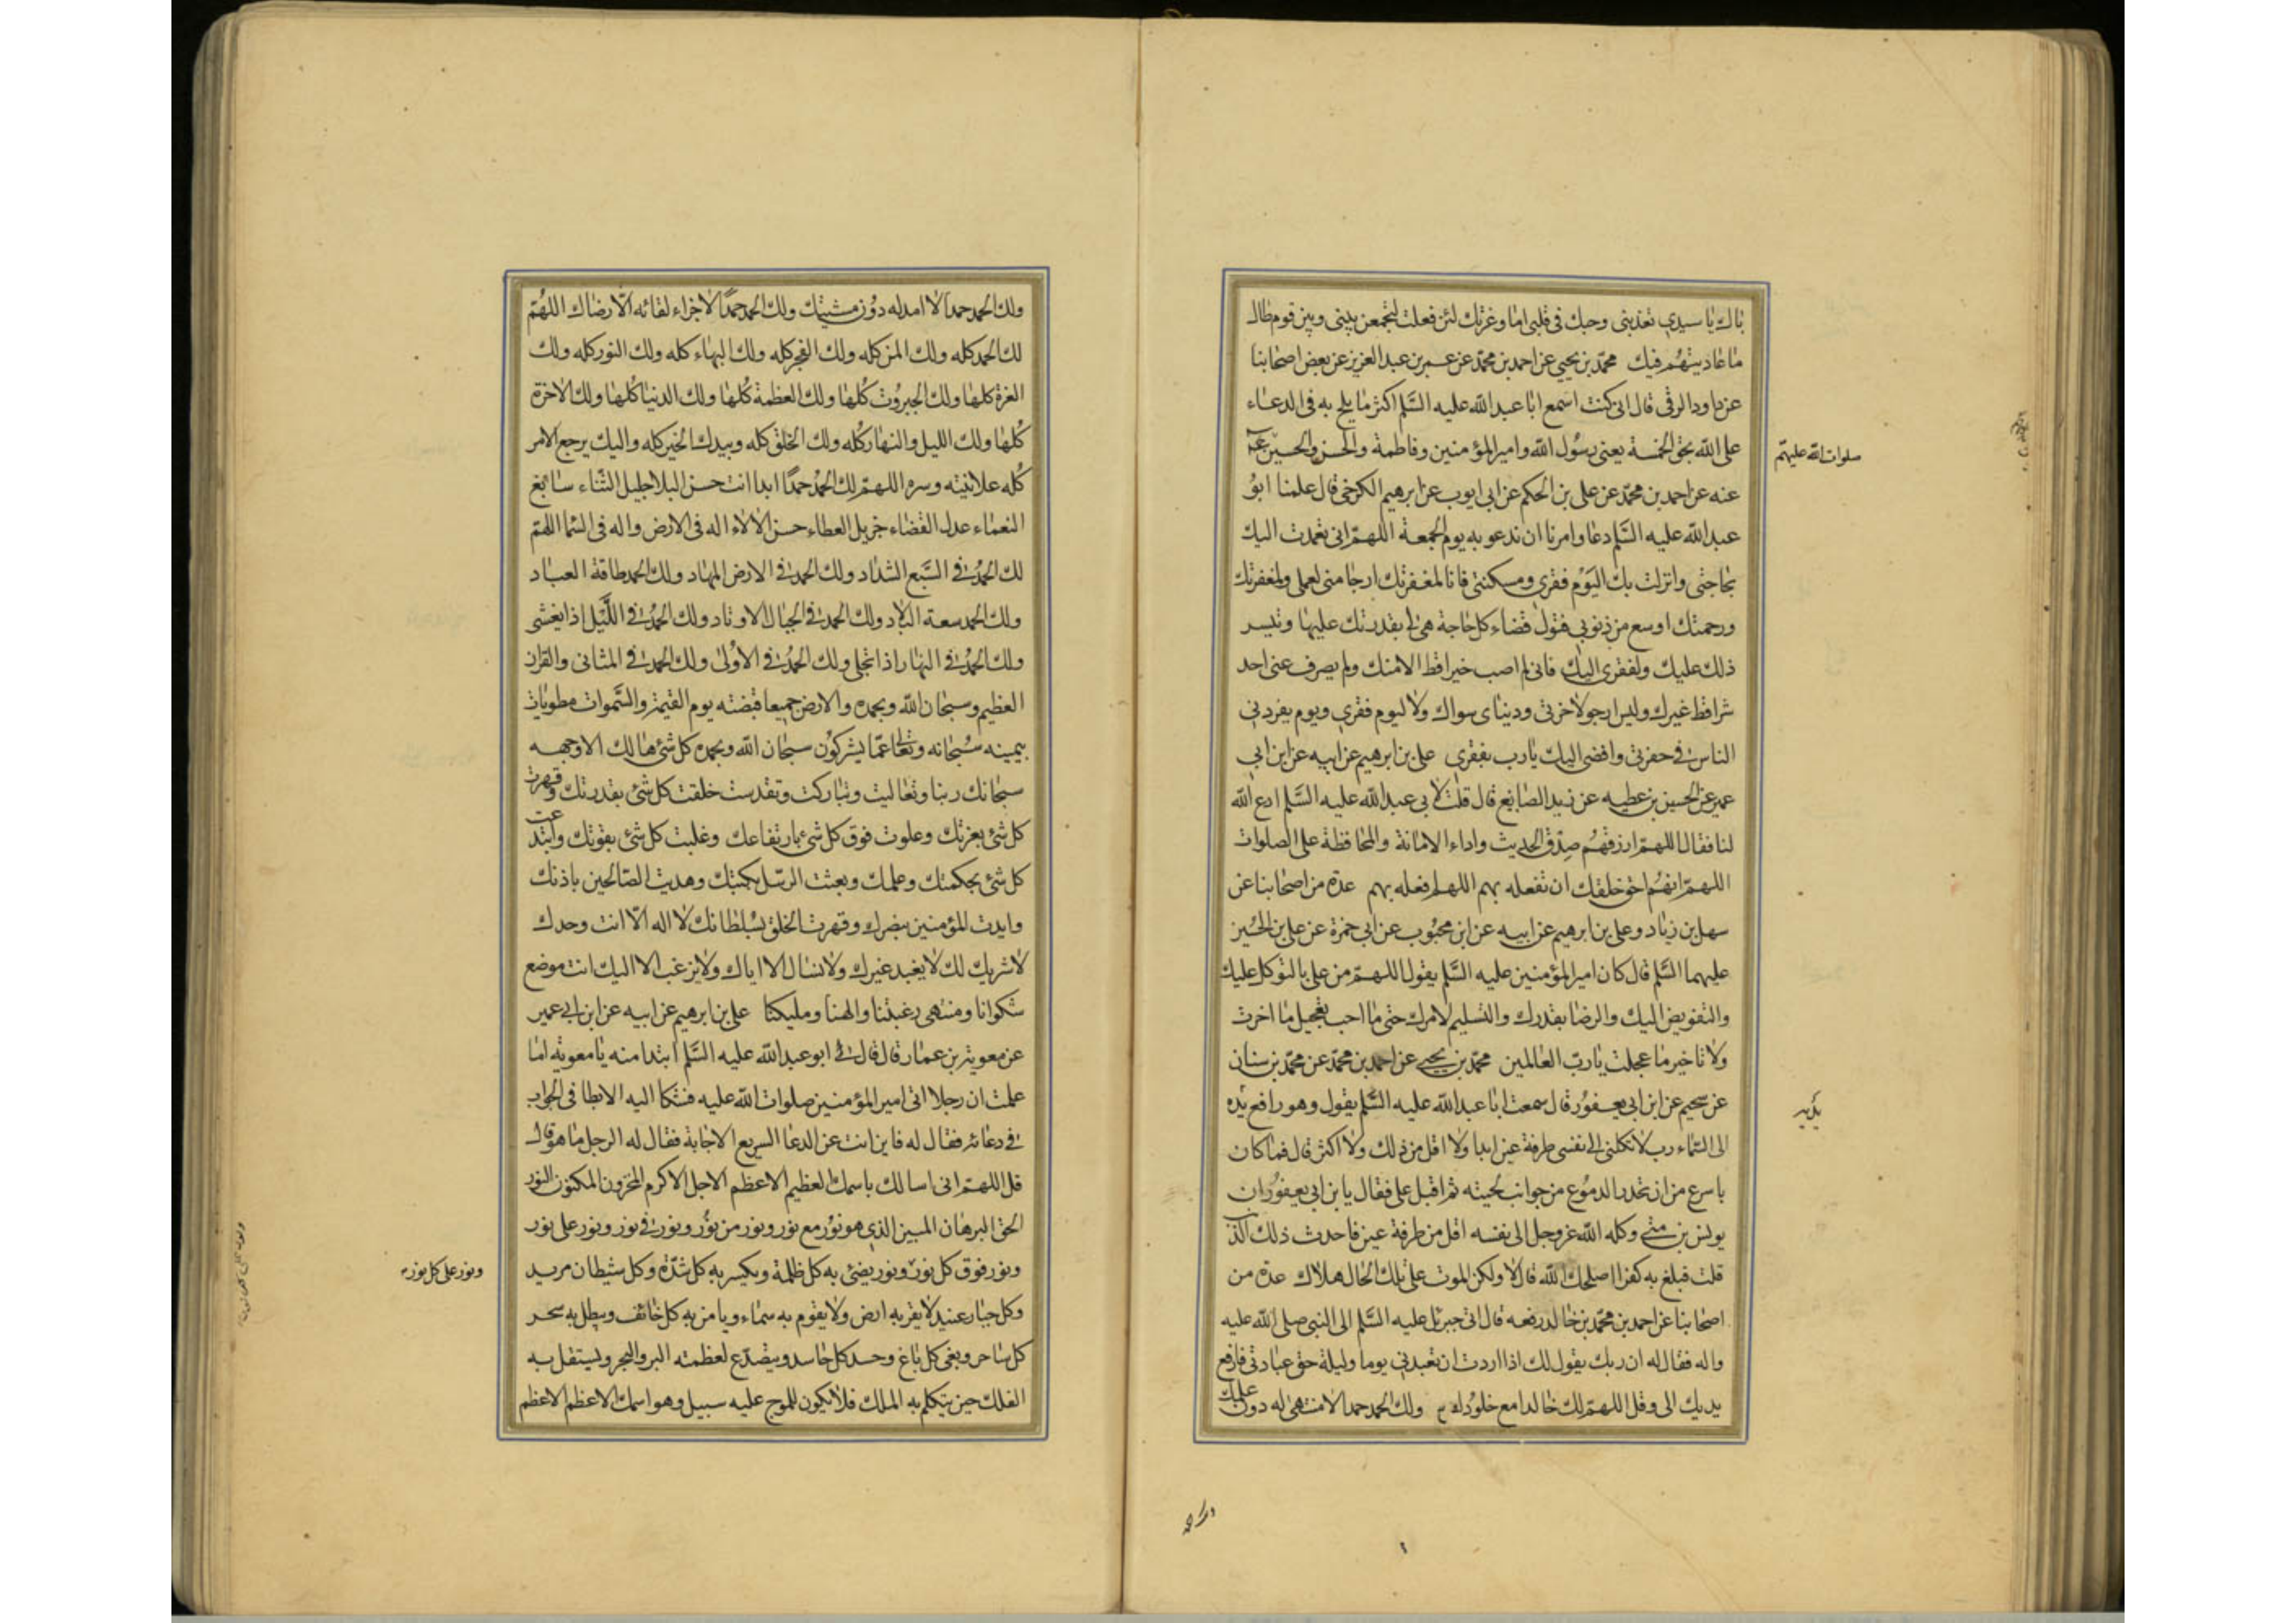 باك يا سيدي تعذبني وحبك في قلبي اما وعزتك لئن فعلت لتجمعن بيني وبين قوم طال
ما عاديتهم فيك محمد بن يحيى عن احمد بن محمد عن عمر بن عبد العزيز عن بعض اصحابنا
عن داود الرقي قال اني كنت اسمع ابا عبد الله عليه السلم اكثر ما يلح به في الدعاء
على الله بحق الخمسة يعني رسول الله وامير المؤمنين وفاطمة والحسن والحسين
صلوات الله عليهم
عنه عن احمد بن محمد عن علي بن الحكم عن ابي ايوب عن ابرهيم الكرخي قال علمنا ابو
عبد الله عليه السلم دعا وامرنا ان ندعو به يوم الجمعة اللهم اني تعمدت اليك
بحاجتي وانزلت بك اليوم فقري ومسكنتي فانا لمغفرتك ارجا مني لعملي ولمغفرتك
ورحمتك اوسع من ذنوبي فتول قضاء كل حاجة هي لي بقدرتك عليها وتيسر
ذلك عليك ولفقري اليك فاني لم اصب خيرا قط الا منك ولم يصرف عني احد
شرا قط غيرك وليس ارجو لاخرتي ودنياى سواك ولا ليوم فقري ويوم يفردني
الناس في حفرتي وافضى اليك يا رب بفقري علي بن ابرهيم عن ابيه عن ابن ابي
عمير عن الحسين بن عطيه عن زيد الصايغ قال قلت لابي عبد الله عليه السلم ادع الله
لنا فقال اللهم ارزقهم صدق الحديث واداء الامانة والمحافظة على الصلوات
اللهم انهم احق خلقك ان تفعله بهم اللهم افعله بهم عدة من اصحابنا عن
سهل بن زياد وعلي بن ابرهيم عن ابيه عن ابن محبوب عن ابي حمزة عن علي بن الحسين
عليهما السلم قال كان امير المؤمنين عليه السلم يقول اللهم من علي بالتوكل عليك
والتفويض اليك والرضا بقدرك والتسليم لامرك حتى ما احب تعجيل ما اخرت
ولا تاخير ما عجلت يا رب العالمين محمد بن يحيى عن احمد بن محمد عن محمد بن سنان
عن سحيم عن ابن ابي يعفور قال سمعت ابا عبد الله عليه السلم يقول وهو رافع يده
الى السماء رب لا تكلني الى نفسي طرفة عين ابدا ولا اقل من ذلك ولا اكثر قال فما كان
باسرع من ان تحدر الدموع من جوانب لحيته ثم اقبل علي فقال يا بن ابي يعفور ان
يونس بن متى وكله الله عز وجل الى نفسه اقل من طرفة عين فاحدث ذلك الذنب
قلت فبلغ به كفرا اصلحك الله قال لا ولكن الموت على تلك الحال هلاك عدة من
اصحابنا عن احمد بن محمد بن خالد رفعه قال اتى جبرئل عليه السلم الى النبي صلى الله عليه
واله فقال له ان ربك يقول لك اذا اردت ان تعبدني يوما وليلة حق عبادتي فارفع
يديك الي وقل اللهم لك خالدا مع خلودك ولك الحمد حمدا لا منتهى له دون علمك
ولك الحمد حمدا لا امد له دون مشيتك ولك الحمد حمدا لا جزاء لقائه الا رضاك اللهم
لك الحمد كله ولك المن كله ولك الفخر كله ولك البهاء كله ولك النور كله ولك
العزة كلها ولك الجبروت كلها ولك العظمة كلها ولك الدنيا كلها ولك الاخرة
كلها ولك الليل والنهار كله ولك الخلق كله وبيدك الخير كله واليك يرجع الامر
كله علانيته وسره اللهم لك الحمد حمدا ابدا انت حسن البلا جليل الثناء سابغ
النعماء عدل القضاء جزيل العطاء حسن الالاء اله في الارض واله في السما اللهم
لك الحمد في السبع الشداد ولك الحمد في الارض المهاد ولك الحمد طاقة العباد
ولك الحمد سعة البلاد ولك الحمد في الجبال الاوتاد ولك الحمد في الليل اذا يغشى
ولك الحمد في النهار اذا تجلى ولك الحمد في الاولى ولك الحمد في المثاني والقران
العظيم وسبحان الله وبحمده والارض جميعا قبضته يوم القيمة والسموات مطويات
بيمينه سبحانه وتعالى عما يشركون سبحان الله وبحمده كل شئ هالك الا وجهه
سبحانك ربنا وتعاليت وتباركت وتقدست خلقت كل شئ بقدرتك وقهرت
كل شئ بعزتك وعلوت فوق كل شئ بارتفاعك وغلبت كل شئ بقوتك وابتدعت
كل شئ بحكمتك وعلمك وبعثت الرسل بكتبك وهديت الصالحين باذنك
وايدت المؤمنين بنصرك وقهرت الخلق بسلطانك لا اله الا انت وحدك
لا شريك لك لا يعبد غيرك ولا نسال الا اياك ولا نرغب الا اليك انت موضع
شكوانا ومنتهى رغبتنا والهنا ومليكنا علي بن ابرهيم عن ابيه عن ابن ابي عمير
عن معوية بن عمار قال قال لي ابو عبد الله عليه السلم ابتدا منه يا معوية اما
علمت ان رجلا اتى امير المؤمنين صلوات الله عليه فشكا اليه الابطا في الجواب
في دعائه فقال له فاين انت عن الدعا السريع الاجابة فقال له الرجل ما هو قال
قل اللهم اني اسالك باسمك العظيم الاعظم الاجل الاكرم المخزون المكنون النور
الحق البرهان المبين الذي هو نور مع نور ونور من نور ونور في نور ونور على نور
ونور فوق كل نور ونور يضئ به كل ظلمة ويكسر به كل شدة وكل شيطان مريد
ونور على كل نور
وكل جبار عنيد لا يقر به ارض ولا يقوم به سماء ويامن به كل خائف ويبطل به سحر
كل ساحر وبغي كل باغ وحسد كل حاسد ويتصدع لعظمته البر والبحر ويستقل به
الفلك حين يتكلم به الملك فلا يكون للموج عليه سبيل وهو اسمك الاعظم الاعظم